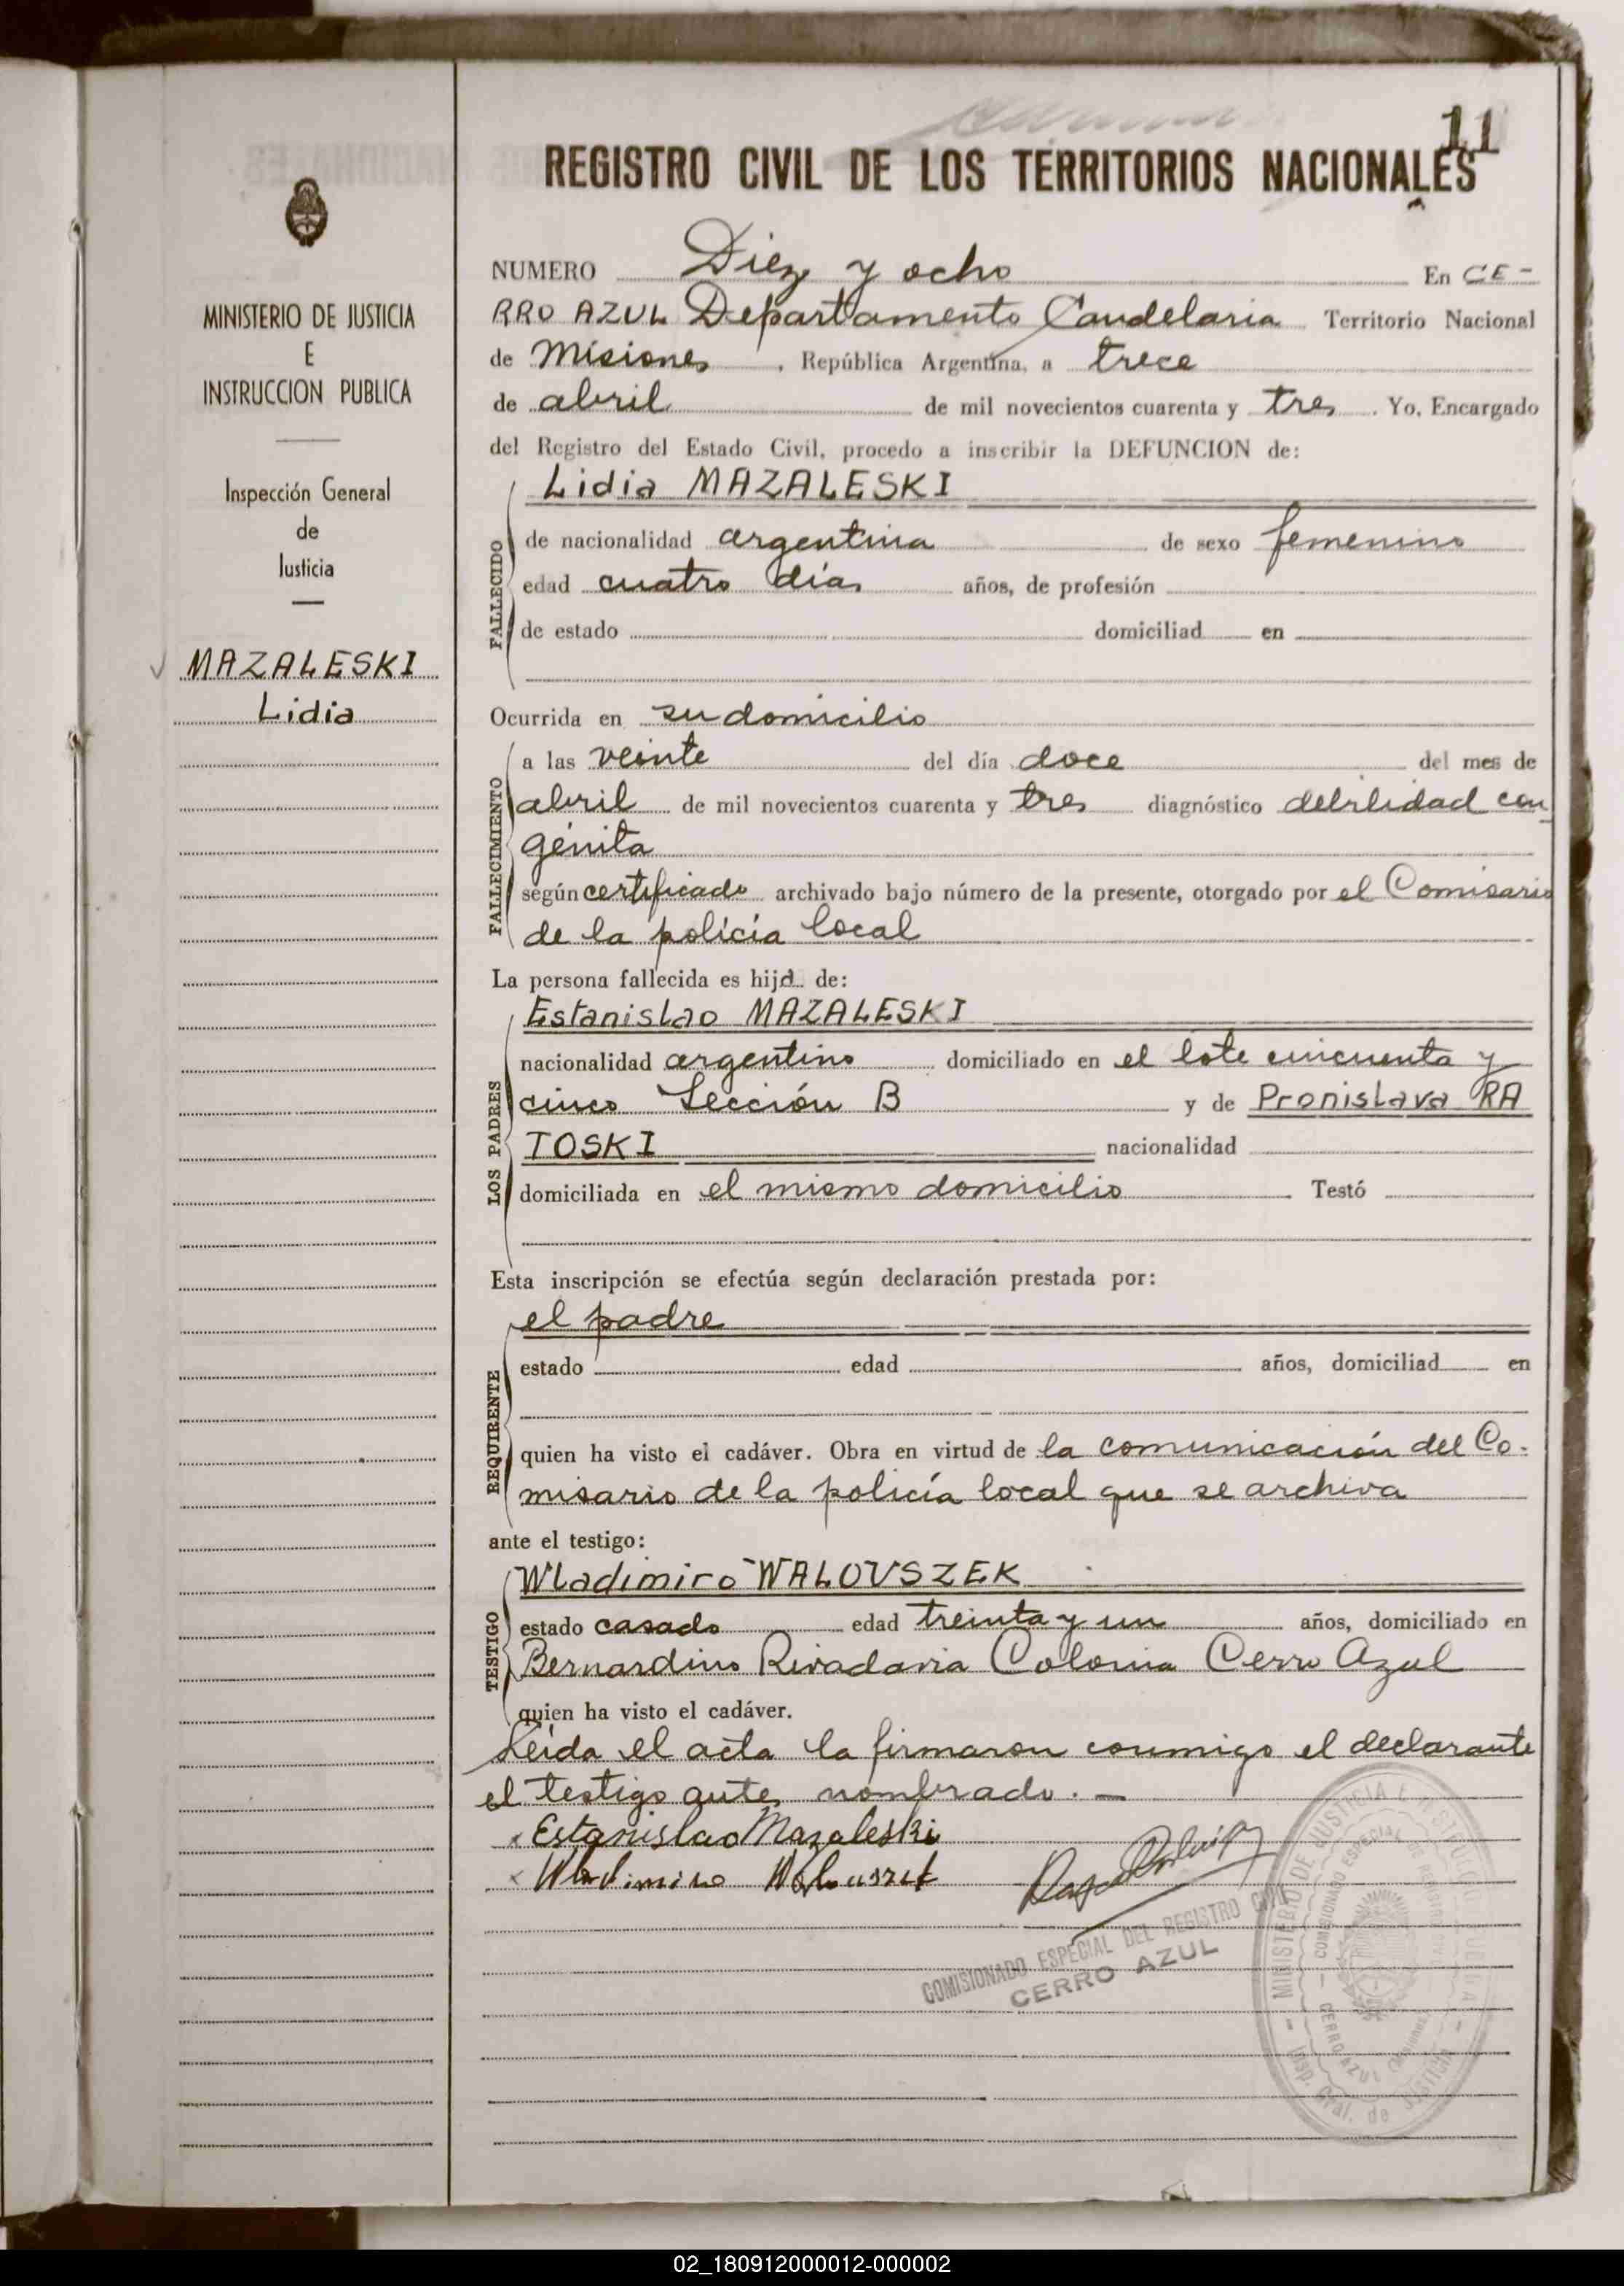 11
REGISTRO CIVIL DE LOS TERRITORIOS NACIONALES
MINISTERIO DE JUSTICIA
E
INSTRUCCION PUBLICA
Inspección General
de
Justicia
MAZALESKI
Lidia
NUMERO Diez y ocho En CE-
RRO AZUL Departamento Candelaria Territorio Nacional
de Misiones, República Argentina, a trece
de abril de mil novecientos cuarenta y tres. Yo, Encargado
del Registro del Estado Civil, procedo a inscribir la DEFUNCION de:
FALLECIDO
Lidia MAZALESKI
de nacionalidad argentina de sexo femenino
edad cuatro días años, de profesión
de estado domiciliad en
Ocurrida en su domicilio
FALLECIMIENTO
a las veinte del día doce del mes de
abril de mil novecientos cuarenta y tres diagnóstico debilidad con
génita
según certificado archivado bajo número de la presente, otorgado por el Comisario
de la policía local
La persona fallecida es hija de:
LOS PADRES
Estanislao MAZALESKI
nacionalidad argentino domiciliado en el lote cincuenta y
cinco Sección B y de Pronislava RA
TOSKI nacionalidad
domiciliada en el mismo domicilio Testó
Esta inscripción se efectúa según declaración prestada por:
REQUIRENTE
el padre
estado edad años, domiciliad en
quien ha visto el cadáver. Obra en virtud de la comunicación del Co-
misario de la policía local que se archiva
ante el testigo:
TESTIGO
Wladimiro WALOUSZEK
estado casado edad treinta y un años, domiciliado en
Bernardino Rivadavia Colonia Cerro Azul
quien ha visto el cadáver.
Leída el acta la firmaron conmigo el declarante
el testigo antes nombrado. —
Estanislao Mazaleski
Wladimiro Walouszek
COMISIONADO ESPECIAL DEL REGISTRO CIVIL
CERRO AZUL
MINISTERIO DE JUSTICIA E INSTRUCCION PUBLICA
Insp. Gral. de Justicia
COMISIONADO ESPECIAL DE REGISTRO CIVIL
CERRO AZUL (Misiones)
02_180912000012-000002